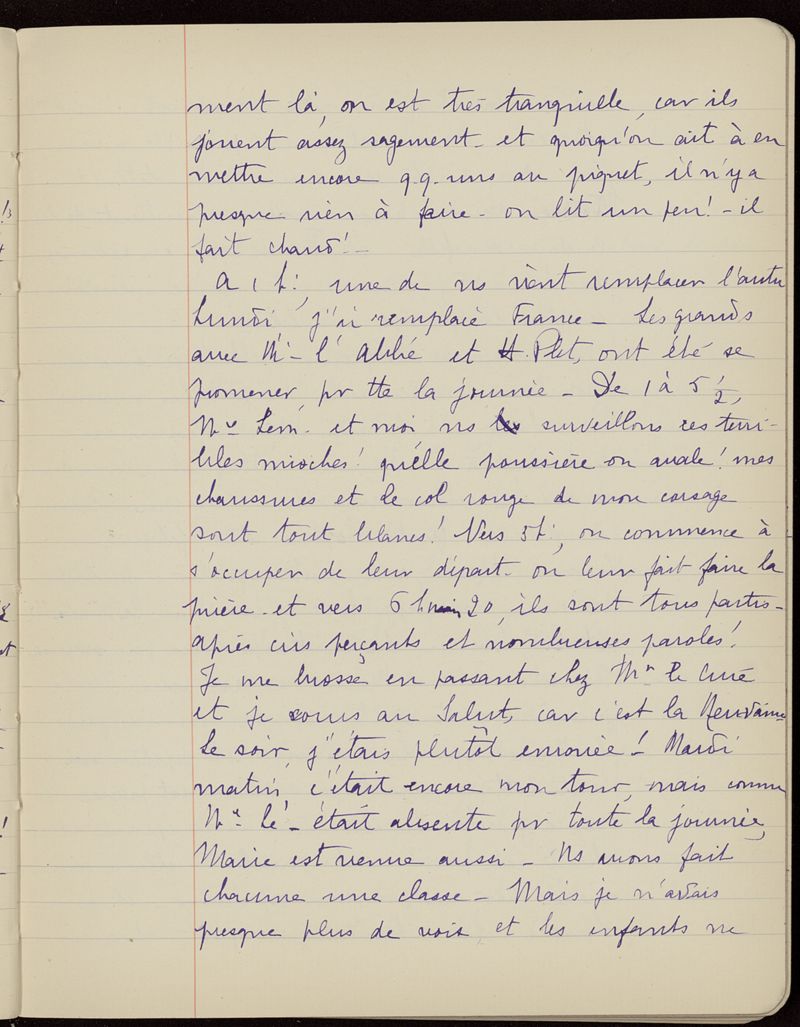 ment là, on est très tranquille, car ils
jouent assez sagement - et quoiqu'on ait à en
mettre encore q.q. uns au piquet, il n'y a
presque rien à faire - on lit un peu! - il
fait chaud! -
A 1 h: une de ns vient remplacer l'autre
Lundi, j'ai remplacé France - Les grands
avec Mr - l'Abbé et H. Plet, ont été se
promener, pr tte la journée - De 1 à 5 1/2,
Lem. et moi ns surveillons ces terri-
bles mioches! quelle poussière on avale! mes
chaussures et le col rouge de mon corsage
sont tout blancs! Vers 5h:, on commence à
s'occuper de leur départ - on leur fait faire la
prière - et vers 6 h 20, ils sont tous partis -
après cris perçants et nombreuses paroles!
Je me brosse en passant chez Mr le Curé
et je cours au Salut, car c'est la Neuvaine
Le soir, j'étais plutôt enrouée! Mardi
matin, c'était encore mon tour, mais comme
Lé - était absente pr toute la journée,
Marie est venue aussi - Ns avons fait
chacune une classe - Mais je n'avais
presque plus de voix, et les enfants ne